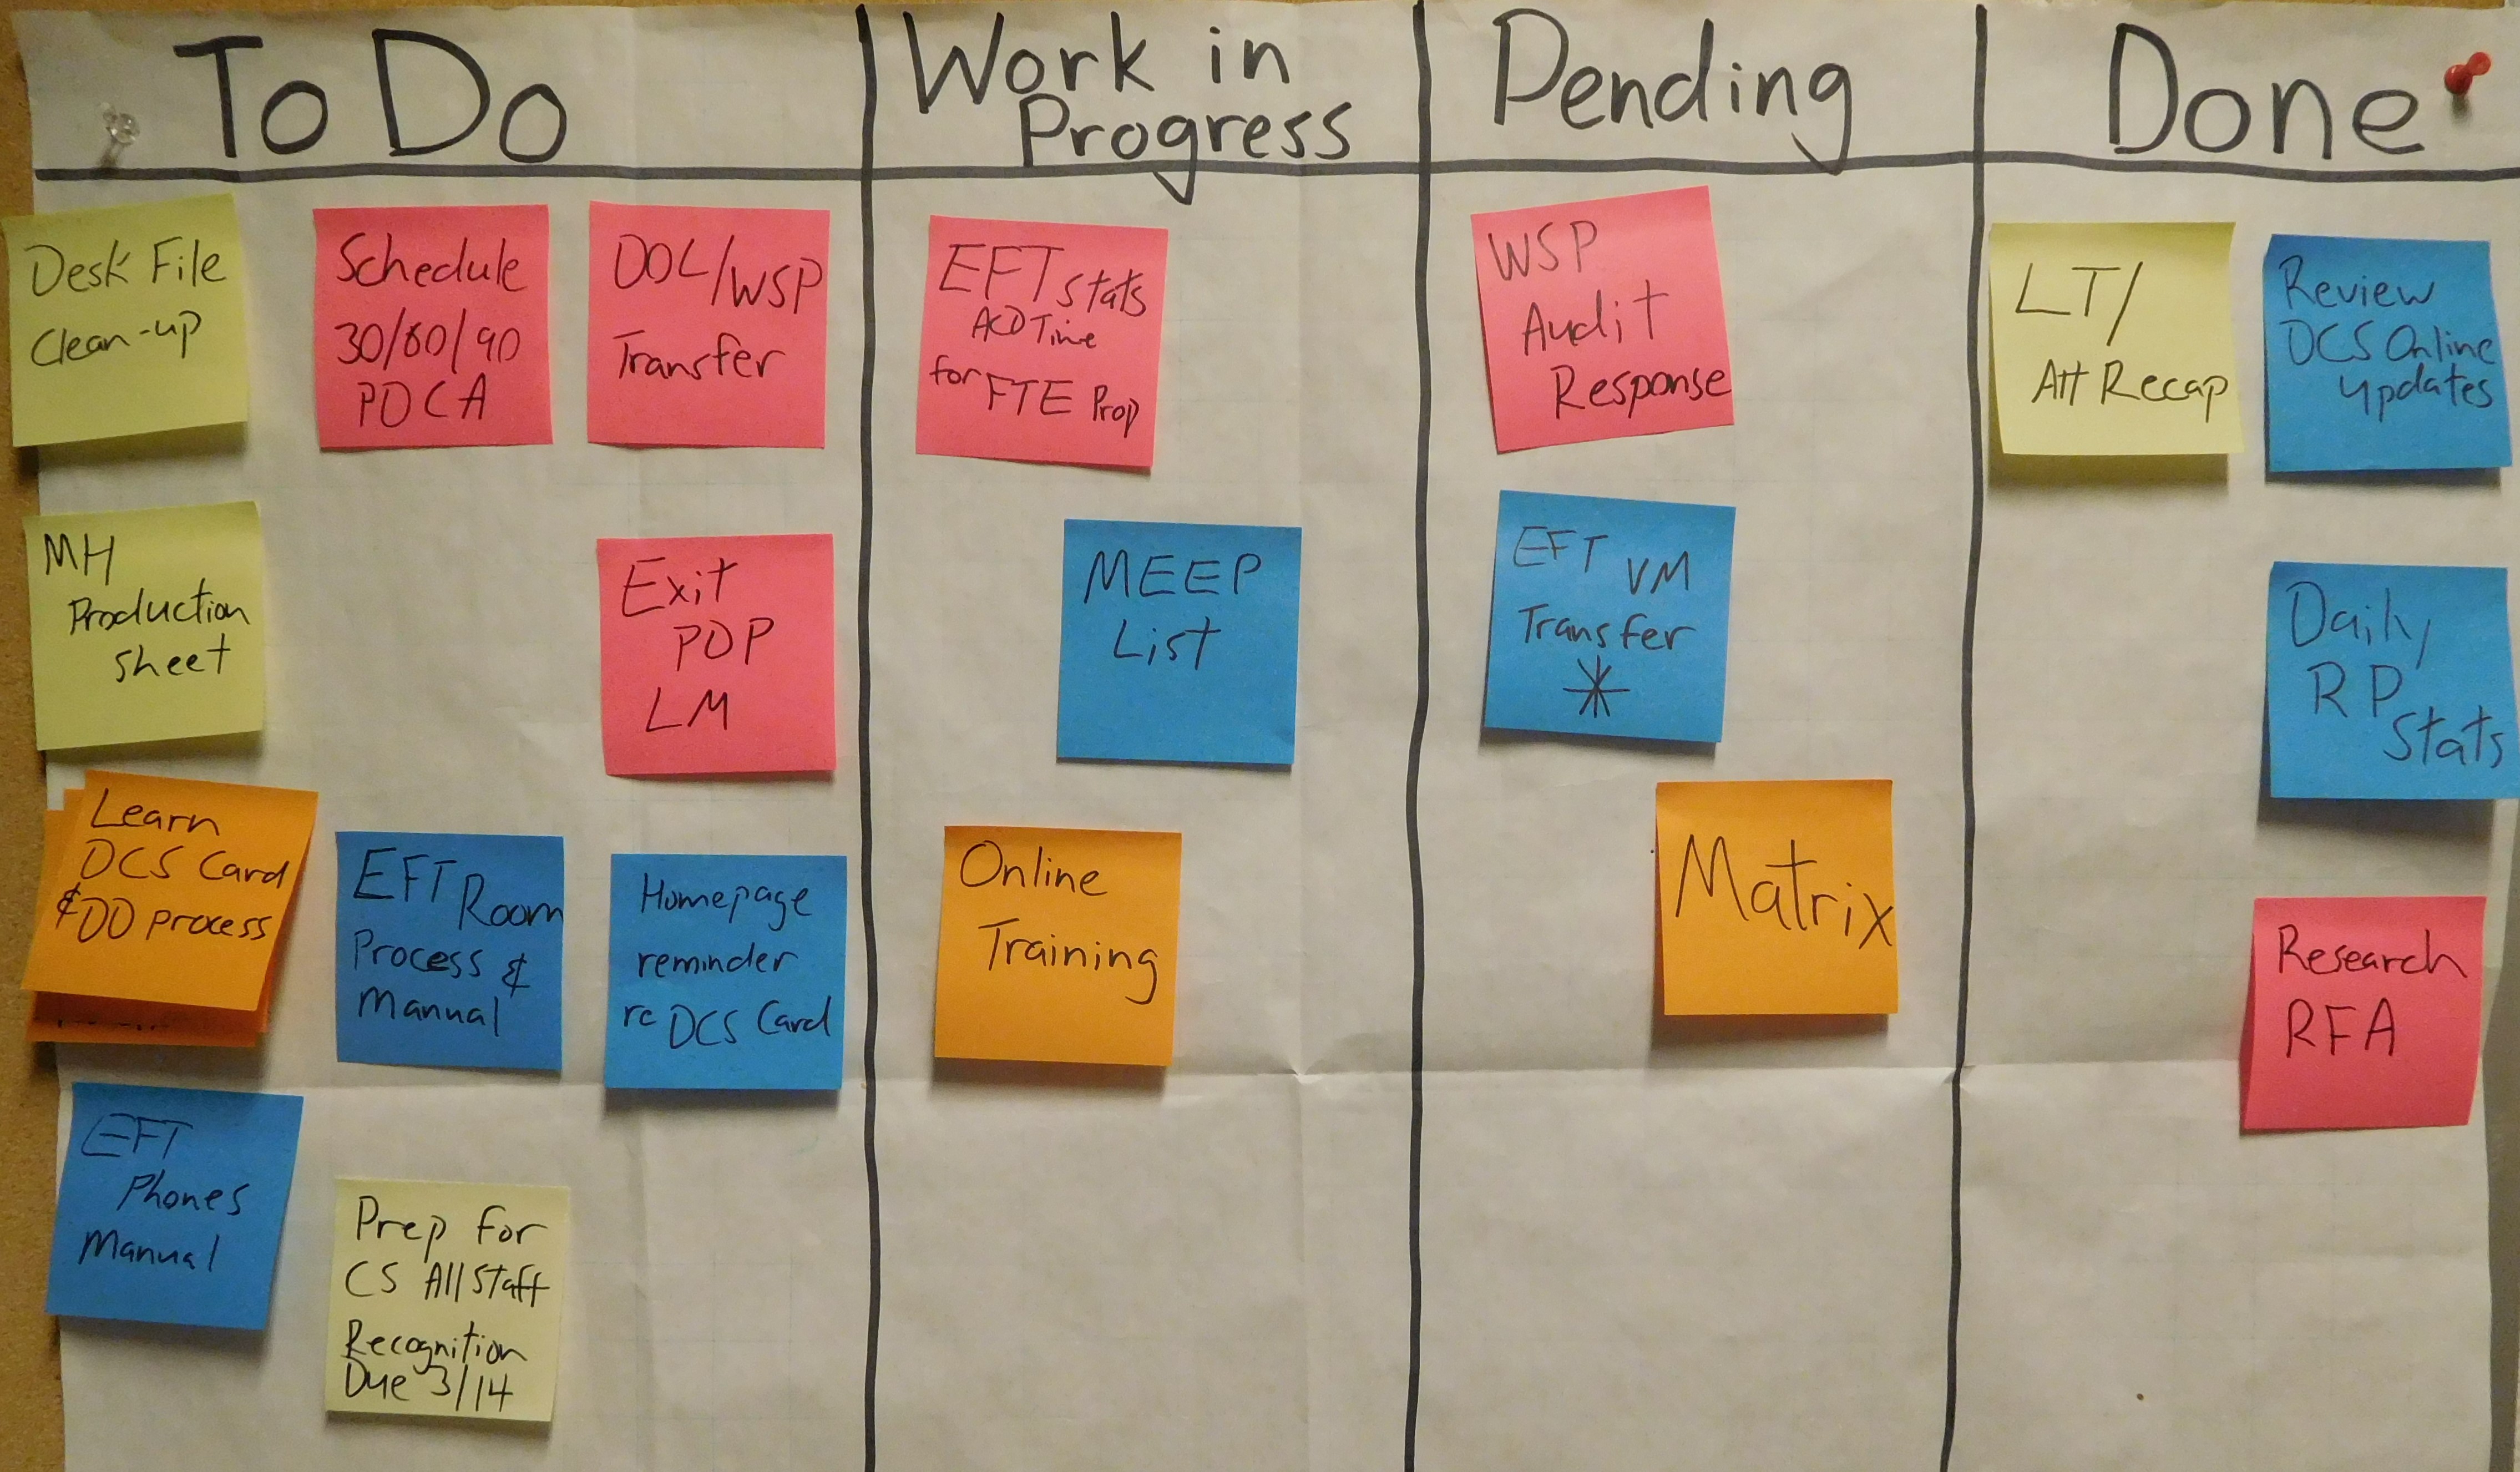 To Do
Work in
Progress
Pending
Done
Desk File
Clean-up
Schedule
30/60/90
PDCA
DOL/WSP
Transfer
MH
Production
Sheet
Exit
PDP
LM
Learn
DCS Card
& DD process
EFT Room
Process &
Manual
Homepage
reminder
re DCS Card
EFT
Phones
Manual
Prep for
CS All Staff
Recognition
Due 3/14
EFT Stats
ACD Time
for FTE Prop
MEEP
List
Online
Training
WSP
Audit
Response
EFT VM
Transfer
*
Matrix
LT/
Att Recap
Review
DCS Online
updates
Daily
RP
Stats
Research
RFA